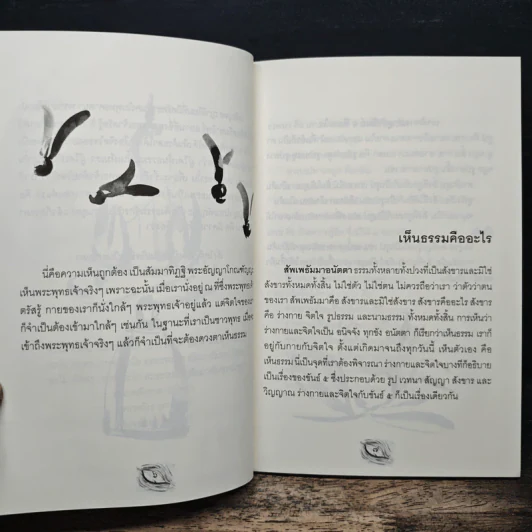 นี่คือความเห็นถูกต้อง เป็นสัมมาทิฏฐิ พระอัญญาโกณฑัญญะ
เห็นพระพุทธเจ้าจริงๆ เพราะฉะนั้น เมื่อเรานั่งอยู่ ณ ที่ซึ่งพระพุทธ
ตรัสรู้ กายของเราก็นั่งใกล้ๆ พระพุทธเจ้าอยู่แล้ว แต่จิตใจของ
ก็จำเป็นต้องเข้ามาใกล้ๆ เช่นกัน ในฐานะที่เราเป็นชาวพุทธ เมื่อ
เข้าถึงพระพุทธเจ้าจริงๆ แล้วก็จำเป็นที่จะต้องดวงตาเห็นธรรม
๖
เห็นธรรมคืออะไร
สัพเพธัมมาอนัตตา ธรรมทั้งหลายทั้งปวงที่เป็นสังขารและมิใช่
สังขารทั้งหมดทั้งสิ้น ไม่ใช่ตัว ไม่ใช่ตน ไม่ควรถือว่าเรา ว่าตัวว่าตน
ของเรา สัพเพธัมมาคือ สังขารและมิใช่สังขาร สังขารคืออะไร สังขาร
คือ ร่างกาย จิตใจ รูปธรรม และนามธรรม ทั้งหมดทั้งสิ้น การเห็นว่า
ร่างกายและจิตใจเป็น อนิจจัง ทุกขัง อนัตตา ก็เรียกว่าเห็นธรรม เราก็
อยู่กับกายกับจิตใจ ตั้งแต่เกิดมาจนถึงทุกวันนี้ เห็นตัวเอง คือ
เห็นธรรมนี่เป็นจุดที่เราต้องพิจารณา ร่างกายและจิตใจบางทีก็อธิบาย
เป็นเรื่องของขันธ์ ๕ ซึ่งประกอบด้วย รูป เวทนา สัญญา สังขาร และ
วิญญาณ ร่างกายและจิตใจกับขันธ์ ๕ ก็เป็นเรื่องเดียวกัน
๗